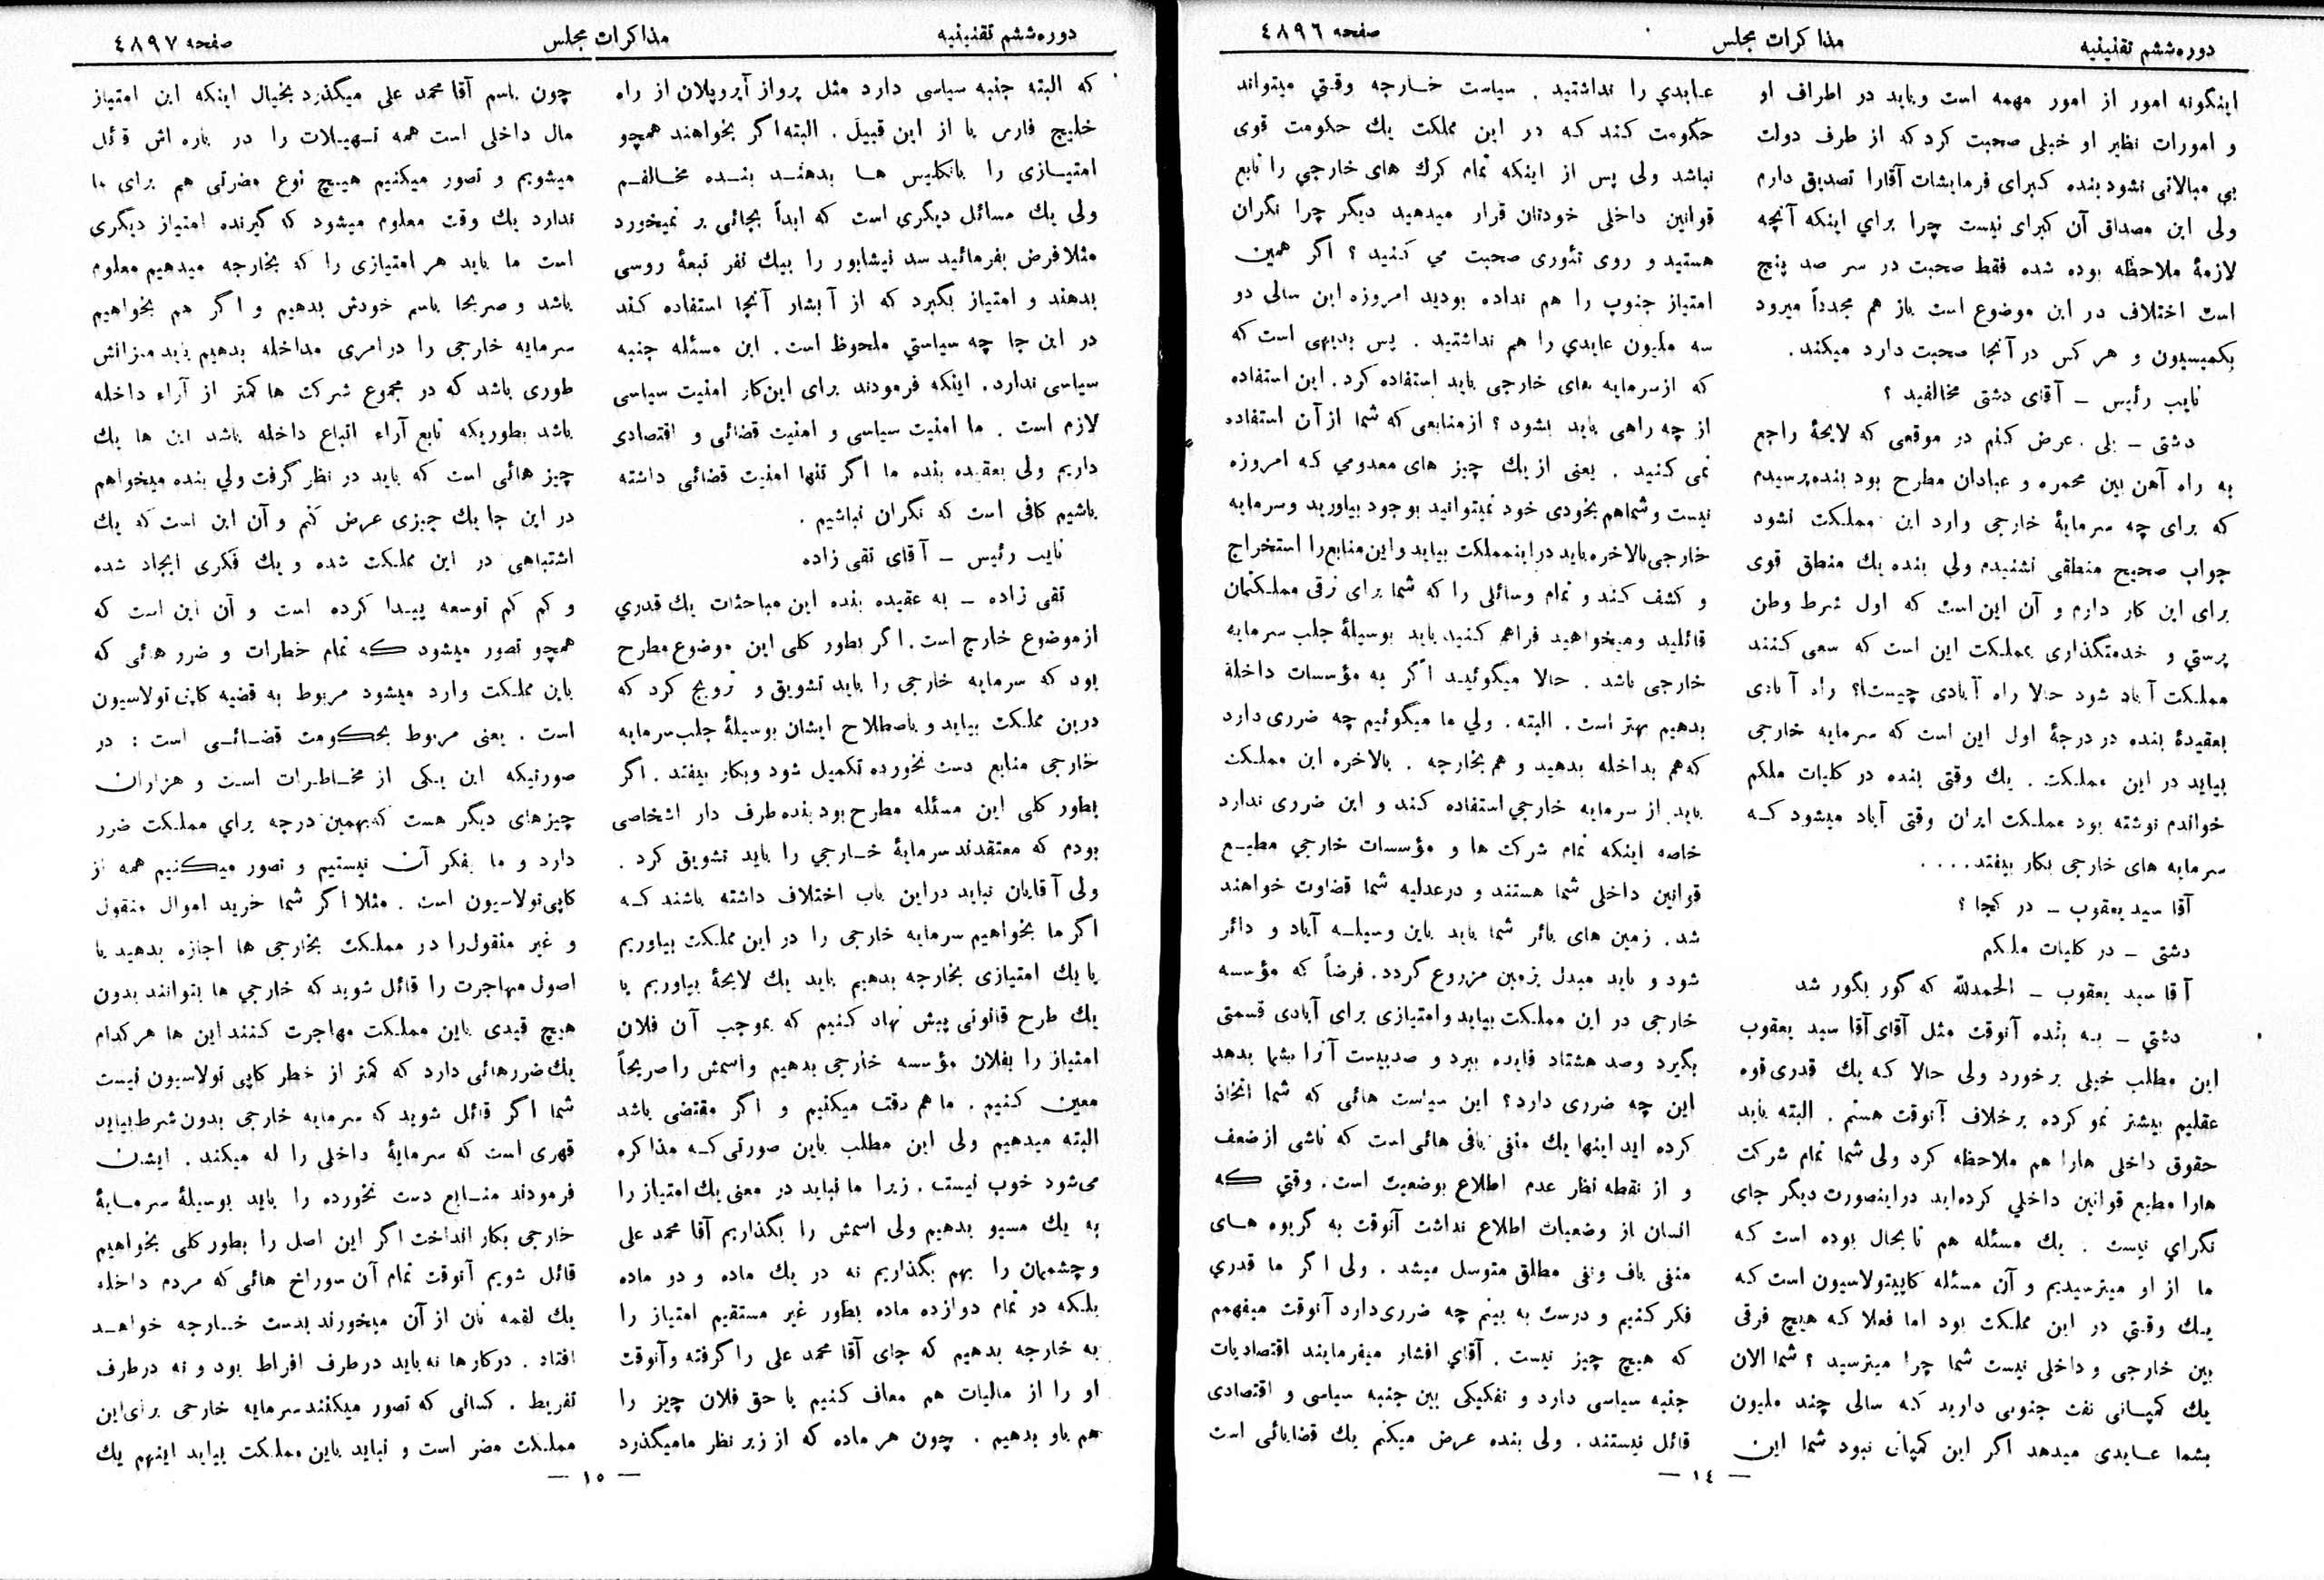 دوره ششم تقنینیه
مذاکرات مجلس
صفحه ٤٨٩٦
اینگونه امور از امور مهمه است وباید در اطراف او
و امورات نظیر او خیلی صحبت کرد که از طرف دولت
بی مبالاتی نشود بنده کبرای فرمایشات آقارا تصدیق دارم
ولی این مصداق آن کبرای نیست چرا برای اینکه آنچه
لازمهٔ ملاحظه بوده شده فقط صحبت در سر صد پنج
است اختلاف در این موضوع است باز هم مجدداً میرود
بکمیسیون و هر کس در آنجا صحبت دارد میکند .
نایب رئیس ــ آقای دشتی مخالفید ؟
دشتی ــ بلی . عرض کنم در موقعی که لایحهٔ راجع
به راه آهن بین محمره و عبادان مطرح بود بنده پرسیدم
که برای چه سرمایهٔ خارجی وارد این مملکت نشود
جواب صحیح منطقی نشنیدم ولی بنده یك منطق قوی
برای این کار دارم و آن این است که اول شرط وطن
پرستی و خدمتگذاری بمملکت این است که سعی کنند
مملکت آباد شود حالا راه آبادی چیست؟ راه آبادی
بعقیدهٔ بنده در درجهٔ اول این است که سرمایه خارجی
بیاید در این مملکت . یك وقتی بنده در کلیات ملکم
خواندم نوشته بود مملکت ایران وقتی آباد میشود که
سرمایه های خارجی بکار بیفتد....
آقا سید یعقوب ــ در کجا ؟
دشتی ــ در کلیات ملکم
آقا سید یعقوب ــ الحمدلله که گور بگور شد
دشتی ــ به بنده آنوقت مثل آقای آقا سید یعقوب
این مطلب خیلی برخورد ولی حالا که یك قدری قوه
عقلیم بیشتر نمو کرده برخلاف آنوقت هستم . البته باید
حقوق داخلی هارا هم ملاحظه کرد ولی شما تمام شرکت
هارا مطیع قوانین داخلی کرده‌اید دراینصورت دیگر جای
نگرای نیست . یك مسئله هم تا بحال بوده است که
ما از او میترسیدیم و آن مسئله کاپیتولاسیون است که
یك وقتی در این مملکت بود اما فعلا که هیچ فرقی
بین خارجی و داخلی نیست شما چرا میترسید ؟ شما الان
یك کمپانی نفت جنوبی دارید که سالی چند ملیون
بشما عایدی میدهد اگر این کمپانی نبود شما این
عایدی را نداشتید . سیاست خارجه وقتی میتواند
حکومت کند که در این مملکت یك حکومت قوی
نباشد ولی پس از اینکه تمام کرك های خارجی را تابع
قوانین داخلی خودتان قرار میدهید دیگر چرا نگران
هستید و روی تئوری صحبت می کنید ؟ اگر همین
امتیاز جنوب را هم نداده بودید امروزه این سالی دو
سه ملیون عایدی را هم نداشتید . پس بدیهی است که
که ازسرمایه های خارجی باید استفاده کرد. این استفاده
از چه راهی باید بشود ؟ از منابعی که شما از آن استفاده
نمی کنید . یعنی از یك چیز های معدومی که امروزه
نیست وشماهم بخودی خود نمیتوانید بوجود بیاورید وسرمایه
خارجی بالاخره باید دراینمملکت بیاید واین منابع را استخراج
و کشف کند و تمام وسائلی را که شما برای ترقی مملکتمان
قائلید ومیخواهید فراهم کنید باید بوسیلهٔ جلب سرمایه
خارجی باشد . حالا میگوئید اگر به مؤسسات داخله
بدهیم بهتر است . البته . ولی ما میگوئیم چه ضرری دارد
که‌هم بداخله بدهید و هم بخارجه . بالاخره این مملکت
باید از سرمایه خارجی استفاده کند و این ضرری ندارد
خاصه اینکه تمام شرکت ها و مؤسسات خارجی مطیع
قوانین داخلی شما هستند و درعدلیه شما قضاوت خواهند
شد . زمین های بائر شما باید باین وسیله آباد و دائر
شود و باید مبدل بزمین مزروع گردد. فرضاً که مؤسسه
خارجی در این مملکت بیاید وامتیازی برای آبادی قسمتی
بگیرد وصد هشتاد فایده ببرد و صدبیست آنرا بشما بدهد
این چه ضرری دارد؟ این سیاست هائی که شما اتخاذ
کرده اید اینها یك منفی بافی هائی است که ناشی از ضعف
و از نقطه نظر عدم اطلاع بوضعیت است. وقتی که
انسان از وضعیات اطلاع نداشت آنوقت به گریوه های
منفی باف ونفی مطلق متوسل میشد . ولی اگر ما قدری
فکر کنیم و درست به بینیم چه ضرری دارد آنوقت میفهمم
که هیچ چیز نیست . آقای افشار میفرمایند اقتصادیات
جنبه سیاسی دارد و تفکیکی بین جنبه سیاسی و اقتصادی
قائل نیستند . ولی بنده عرض میکنم یك قضایائی است
— ١٤ —
دوره ششم تقنینیه
مذاکرات مجلس
صفحه ٤٨٩٧
که البته جنبه سیاسی دارد مثل پرواز آیروپلان از راه
خلیج فارس یا از این قبیل . البته اگر بخواهند همچو
امتیازی را بانگلیس ها بدهند بنده مخالفم
ولی یك مسائل دیگری است که ابداً بجائی بر نمیخورد
مثلا فرض بفرمائید سد نیشابور را بیك نفر تبعهٔ روسی
بدهند و امتیاز بگیرد که از آبشار آنجا استفاده کند
در این جا چه سیاستی ملحوظ است . این مسئله جنبه
سیاسی ندارد. اینکه فرمودند برای این‌کار امنیت سیاسی
لازم است . ما امنیت سیاسی و امنیت قضائی و اقتصادی
داریم ولی بعقیده بنده ما اگر تنها امنیت قضائی داشته
باشیم کافی است که نگران نباشیم .
نایب رئیس ــ آقای تقی زاده
تقی زاده ــ به عقیده بنده این مباحثات یك قدری
از موضوع خارج است . اگر بطور کلی این موضوع مطرح
بود که سرمایه خارجی را باید تشویق و ترویج کرد که
درین مملکت بیاید و باصطلاح ایشان بوسیلهٔ جلب سرمایه
خارجی منابع دست نخورده تکمیل شود وبکار بیفتد . اگر
بطور کلی این مسئله مطرح بود بنده طرف دار اشخاصی
بودم که معتقدند سرمایهٔ خارجی را باید تشویق کرد .
ولی آقایان نباید دراین باب اختلاف داشته باشند که
اگر ما بخواهیم سرمایه خارجی را در این مملکت بیاوریم
یا یك امتیازی بخارجه بدهیم باید یك لایحهٔ بیاوریم یا
یك طرح قانونی پیش نهاد کنیم که بموجب آن فلان
امتیاز را بفلان مؤسسه خارجی بدهیم واسمش را صریحاً
معین کنیم . ما هم دقت میکنیم و اگر مقتضی باشد
البته میدهیم ولی این مطلب باین صورتی که مذاکره
می‌شود خوب نیست . زیرا ما نباید در معنی یك امتیاز را
به یك مسیو بدهیم ولی اسمش را بگذاریم آقا محمد علی
وچشممان را بهم بگذاریم نه در یك ماده و دو ماده
بلکه در تمام دوازده ماده بطور غیر مستقیم امتیاز را
به خارجه بدهیم که جای آقا محمد علی را گرفته وآنوقت
او را از مالیات هم معاف کنیم یا حق فلان چیز را
هم باو بدهیم . چون هر ماده که از زیر نظر مامیگذرد
چون باسم آقا محمد علی میگذرد بخیال اینکه این امتیاز
مال داخلی است همه تسهیلات را در باره اش قائل
میشویم و تصور میکنیم هیچ نوع مضرتی هم برای ما
ندارد یك وقت معلوم میشود که گیرنده امتیاز دیگری
است ما باید هر امتیازی را که بخارجه میدهیم معلوم
باشد و صریحا باسم خودش بدهیم و اگر هم بخواهیم
سرمایه خارجی را درامری مداخله بدهیم باید میزانش
طوری باشد که در مجموع شرکت ها کمتر از آراء داخله
باشد بطوریکه تابع آراء اتباع داخله باشد این ها یك
چیز هائی است که باید در نظر گرفت ولی بنده میخواهم
در این جا یك چیزی عرض کنم و آن این است که یك
اشتباهی در این مملکت شده و یك فکری ایجاد شده
و کم کم توسعه پیدا کرده است و آن این است که
همچو تصور میشود که تمام خطرات و ضرر هائی که
باین مملکت وارد میشود مربوط به قضیه کاپی تولاسیون
است . یعنی مربوط بحکومت قضائی است : در
صورتیکه این یکی از مخاطرات است و هزاران
چیزهای دیگر هست که بهمین درجه برای مملکت ضرر
دارد و ما بفکر آن نیستیم و تصور میکنیم همه از
کاپی‌تولاسیون است . مثلا اگر شما خرید اموال منقول
و غیر منقول را در مملکت بخارجی ها اجازه بدهید یا
اصول مهاجرت را قائل شوید که خارجی ها بتوانند بدون
هیچ قیدی باین مملکت مهاجرت کنند این ها هرکدام
یك ضررهائی دارد که کمتر از خطر کاپی تولاسیون نیست
شما اگر قائل شوید که سرمایه خارجی بدون شرط بیاید
قهری است که سرمایهٔ داخلی را له میکند . ایشان
فرمودند منابع دست نخورده را باید بوسیلهٔ سرمایهٔ
خارجی بکار انداخت اگر این اصل را بطور کلی بخواهیم
قائل شویم آنوقت تمام آن سوراخ هائی که مردم داخله
یك لقمه نان از آن میخورند بدست خارجه خواهد
افتاد . درکارها نه باید درطرف افراط بود و نه درطرف
تفریط . کسانی که تصور میکنند سرمایه خارجی برای این
مملکت مضر است و نباید باین مملکت بیاید اینهم یك
— ١٥ —